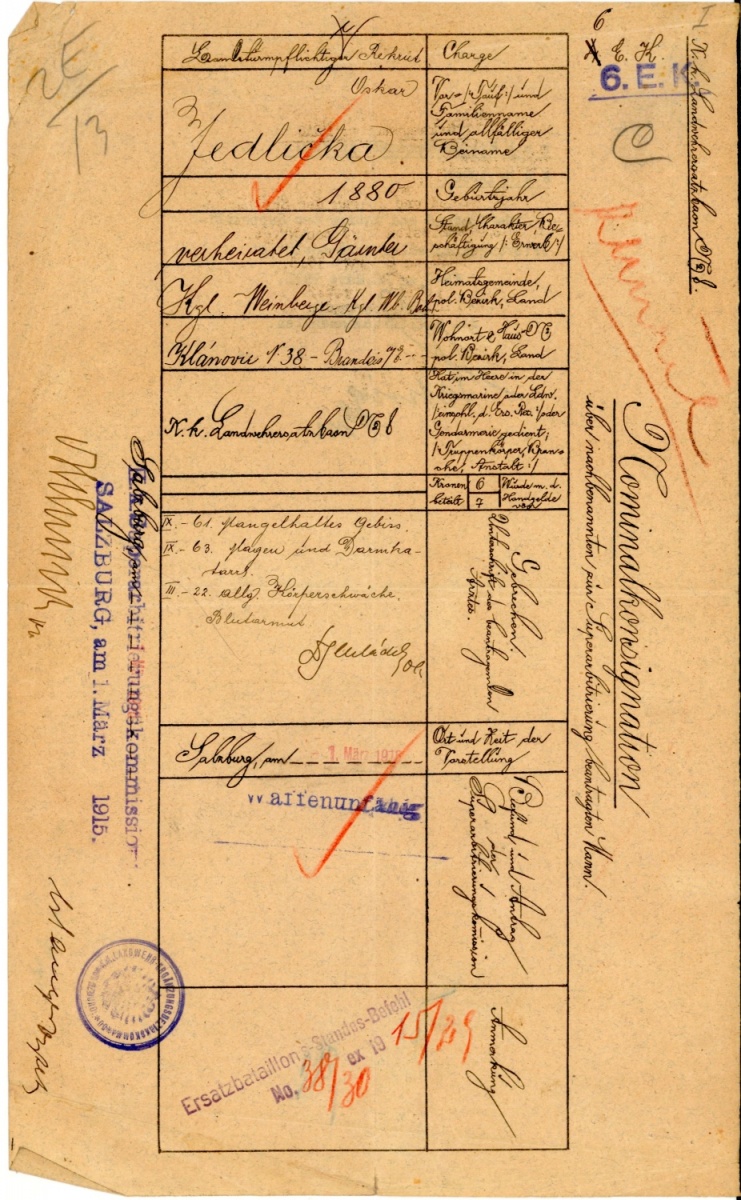 I
K. k. Landwehrersatzbaon No 6.
6
E. K.
6. E. K.
Nominalkonsignation
über nachbenannten zur Superarbitrierung beantragten Mann.
Charge
Landsturmpflichtiger Rekrut
Vor- /: Tauf :/ und
Familienname
und allfälliger
Beiname
Oskar
Jedlička
Geburtsjahr
1880
Stand, Charakter, Be-
schäftigung /: Erwerb :/
verheiratet, Gärtner
Heimatsgemeinde,
pol. Bezirk, Land
Kgl. Weinberge - Kgl. Wb.
Wohnort & Haus No
pol. Bezirk, Land
Klánovic N. 38 - Brandeis
Hat im Heere in der
Kriegsmarine oder Ldw.
/: einschl. d. Ers. Res. :/ oder
Gendarmerie gedient;
/: Truppenkörper, Bran-
che, Anstalt :/
K. k. Landwehrersatzbaon No 6
Kronen
beteilt
6
7
Wurde m. d.
Handgelde
von
Gebrechen.
Unterschrift des beantragenden
Arztes.
IX. - 61. Mangelhaftes Gebiss.
IX. - 63. Magen und Darmka-
tarrh.
III. - 22. allg. Körperschwäche.
Blutarmut
Ort und Zeit der
Vorstellung
Salzburg, am
- 1. März 1915
Befund und Antrag
der
Superarbitrierungskommission
Waffenunfähig
Anmerkung
Ersatzbataillon's-Standes-Befehl
No. 38/30 ex 19 15/29
Superarbitrierungskommission
SALZBURG, am 1. März 1915.